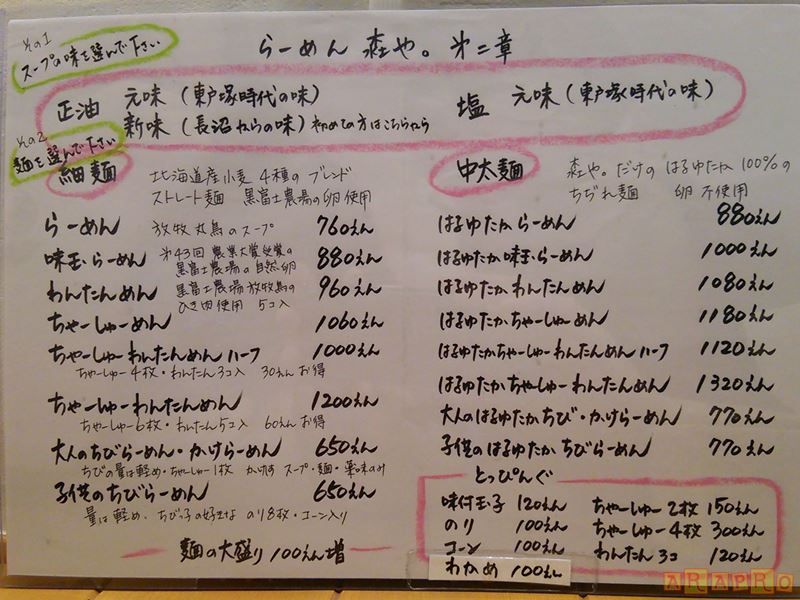 らーめん 森や。第二章
その1
スープの味を選んで下さい
正油 元味(東戸塚時代の味)
新味(長沼からの味)初めての方はこちらから
塩 元味(東戸塚時代の味)
その2
麺を選んで下さい
細麺 北海道産小麦 4種のブレンド
ストレート麺 黒富士農場の卵使用
らーめん 放牧丸鳥のスープ 760えん
味玉らーめん 第43回農業大賞受賞の 880えん
黒富士農場の自然卵
わんたんめん 黒富士農場放牧鳥の 960えん
ひき肉使用 5コ入
ちゃーしゅーめん 1060えん
ちゃーしゅーわんたんめんハーフ 1000えん
ちゃーしゅー4枚・わんたん3コ入 30えんお得
ちゃーしゅーわんたんめん 1200えん
ちゃーしゅー6枚・わんたん5コ入 60えんお得
大人のちびらーめん・かけらーめん 650えん
ちびの量は軽め・ちゃーしゅー1枚 かけは スープ・麺・薬味のみ
子供のちびらーめん 650えん
量は軽め、ちびっ子の好きな のり8枚・コーン入り
麺の大盛り100えん増
中太麺 森や。だけの はるゆたか100%の
ちぢれ麺 卵不使用
はるゆたからーめん 880えん
はるゆたか味玉らーめん 1000えん
はるゆたかわんたんめん 1080えん
はるゆたかちゃーしゅーめん 1180えん
はるゆたかちゃーしゅーわんたんめんハーフ 1120えん
はるゆたかちゃーしゅーわんたんめん 1320えん
大人のはるゆたかちび・かけらーめん 770えん
子供のはるゆたかちびらーめん 770えん
とっぴんぐ
味付玉子 120えん
のり 100えん
コーン 100えん
わかめ 100えん
ちゃーしゅー2枚 150えん
ちゃーしゅー4枚 300えん
わんたん3コ 120えん
ARAPRO